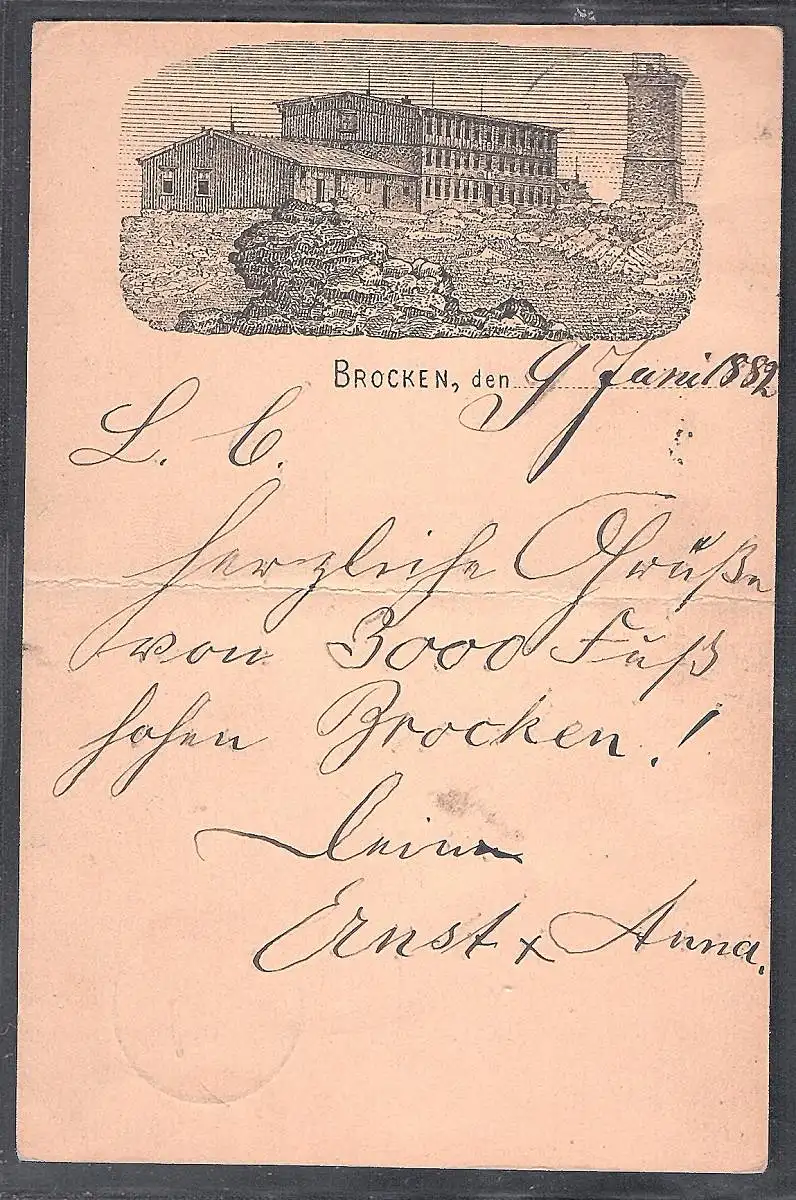 BROCKEN, den 9 Juni 1882
L. C.
herzliche Grüße
von 3000 Fuß
hohen Brocken!
Deine
Ernst + Anna.